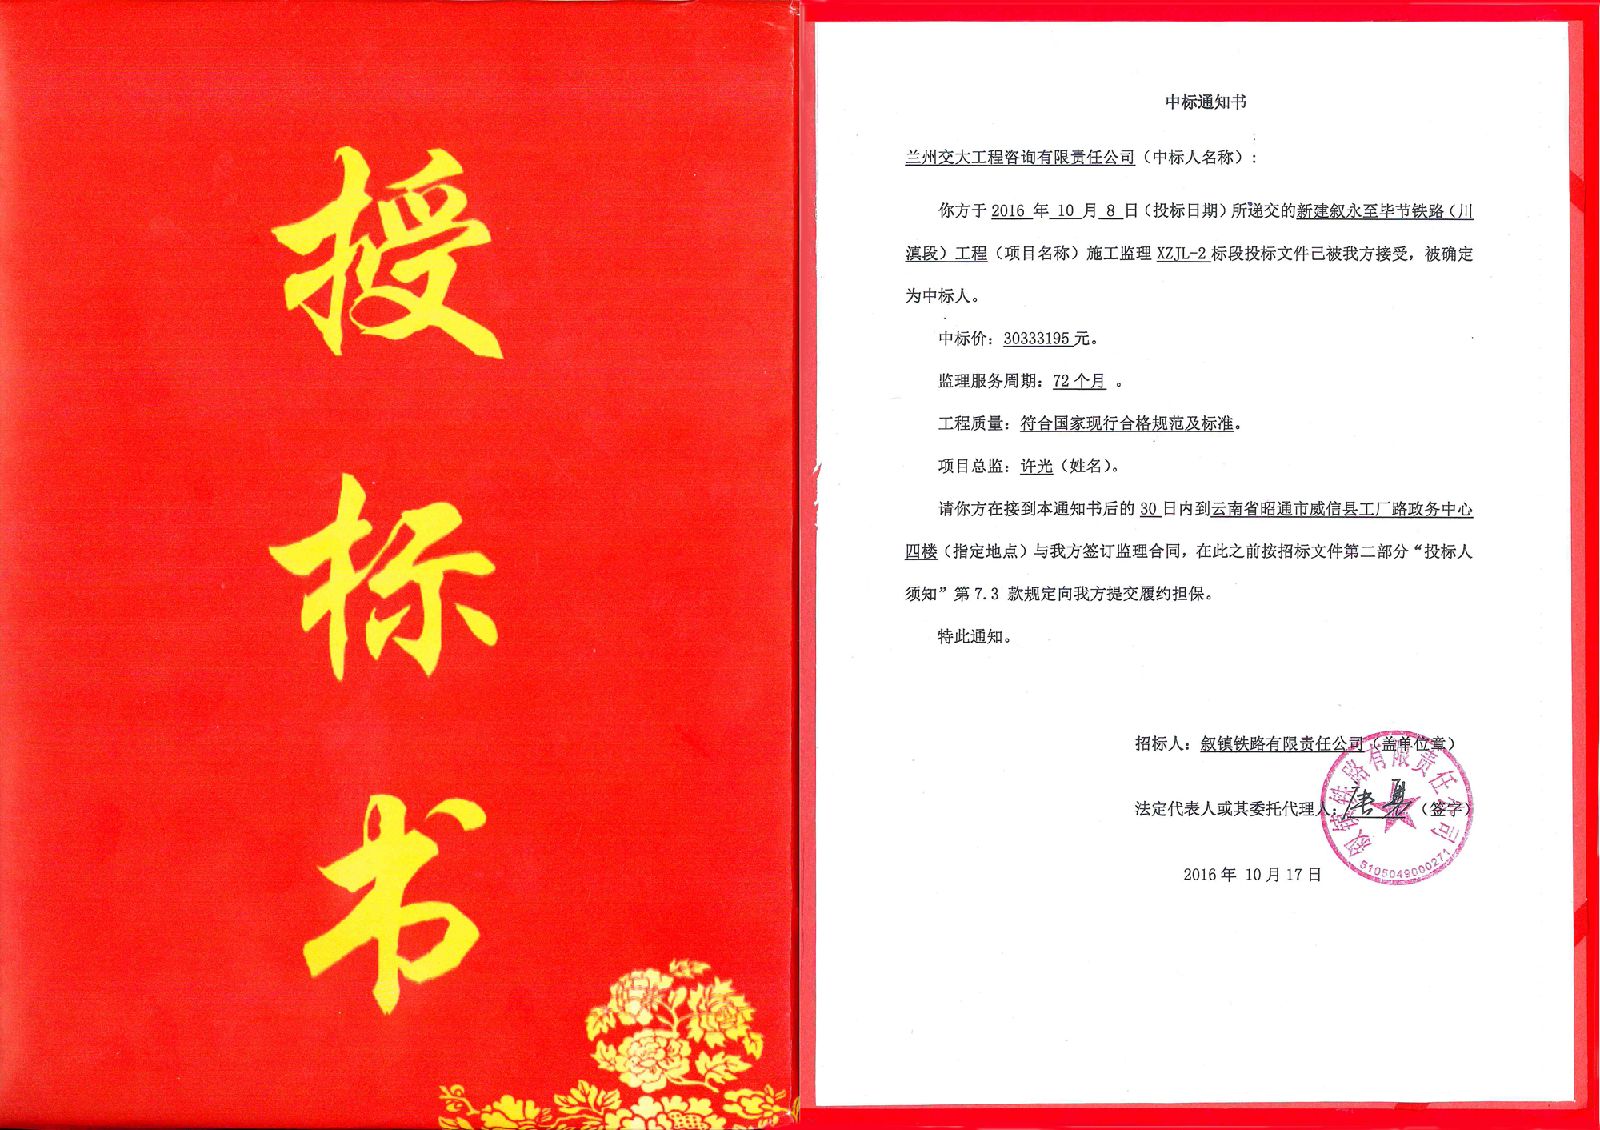 授
标
书
中标通知书
兰州交大工程咨询有限责任公司（中标人名称）：
你方于 2016 年 10 月 8 日（投标日期）所递交的新建叙永至毕节铁路（川
滇段）工程（项目名称）施工监理 XZJL-2 标段投标文件已被我方接受，被确定
为中标人。
中标价：30333195 元。
监理服务周期：72 个月 。
工程质量：符合国家现行合格规范及标准。
项目总监：许光（姓名）。
请你方在接到本通知书后的 30 日内到云南省昭通市威信县工厂路政务中心
四楼（指定地点）与我方签订监理合同，在此之前按招标文件第二部分“投标人
须知”第 7.3 款规定向我方提交履约担保。
特此通知。
招标人：叙镇铁路有限责任公司（盖单位章）
法定代表人或其委托代理人：（签字）
2016 年 10 月 17 日
叙镇铁路有限责任公司
5105049000271